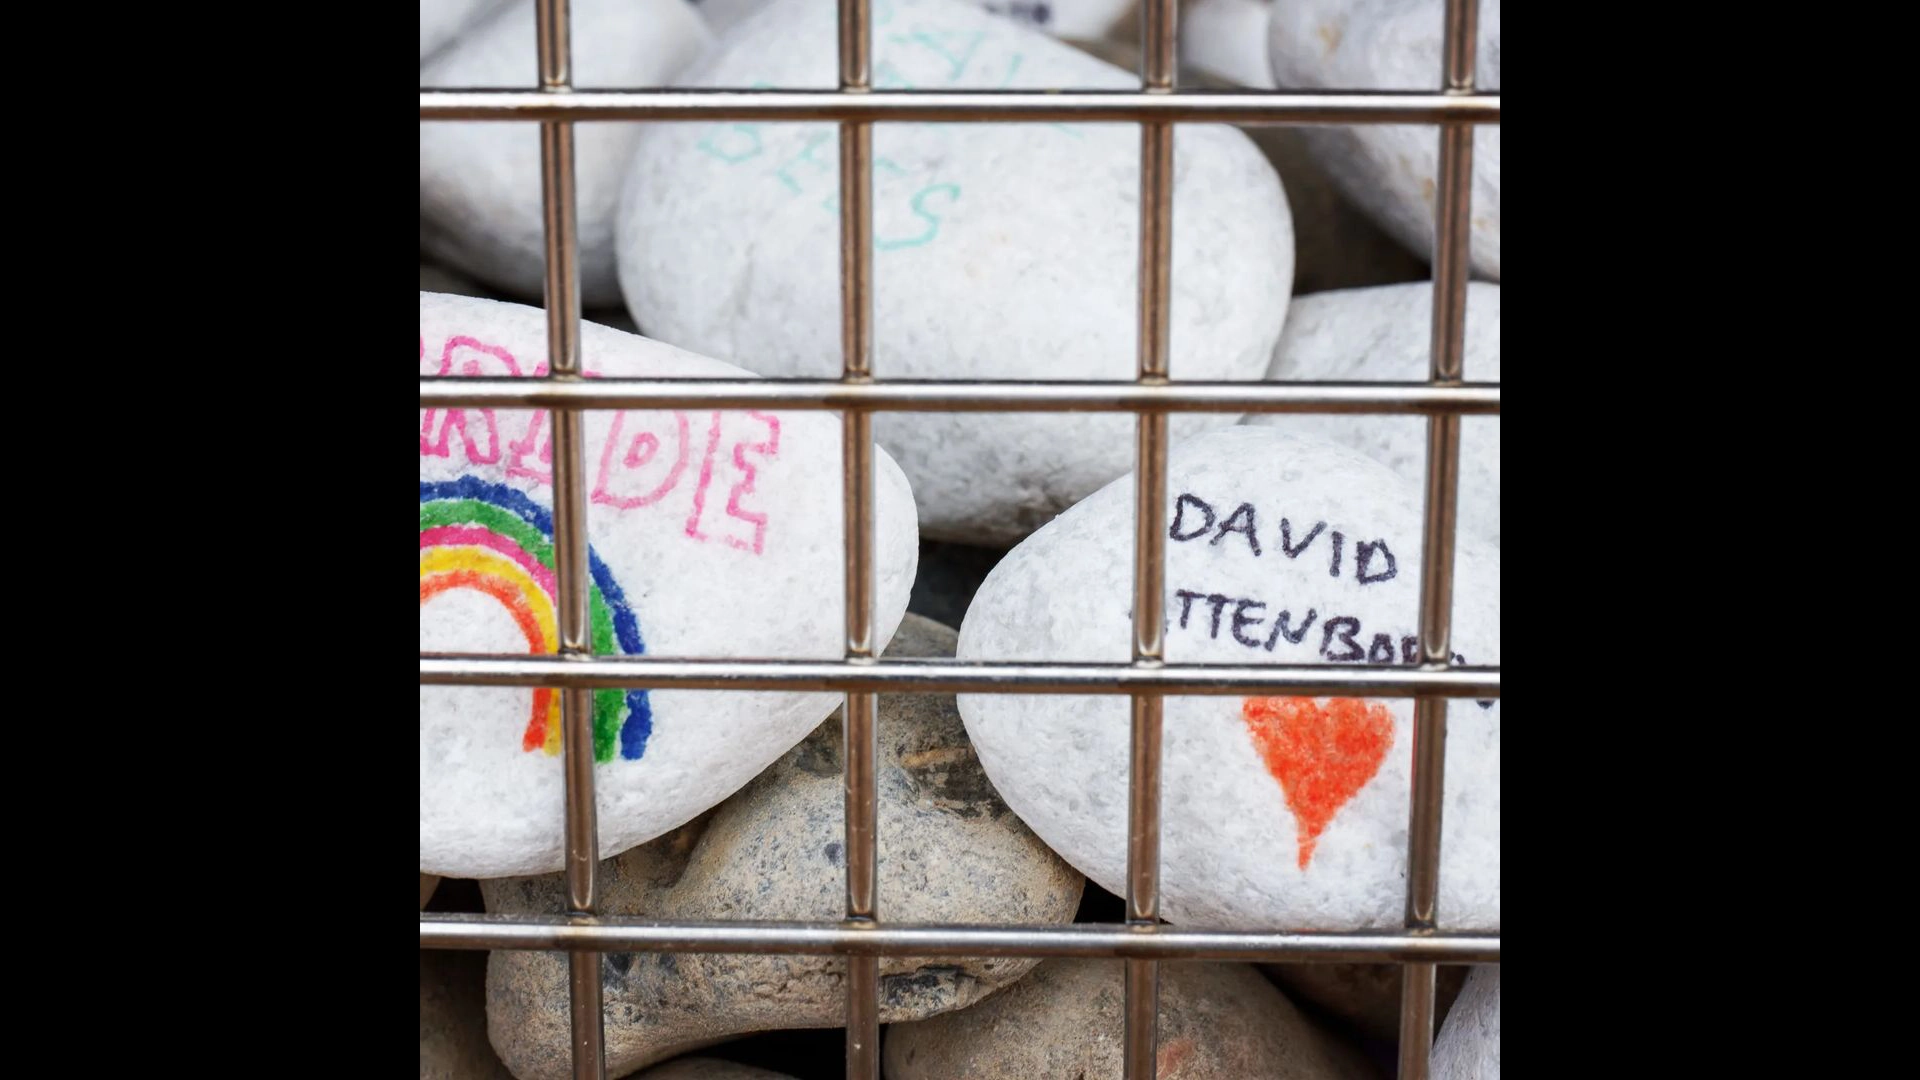 BEES
PRIDE
DAVID
ATTENBOR